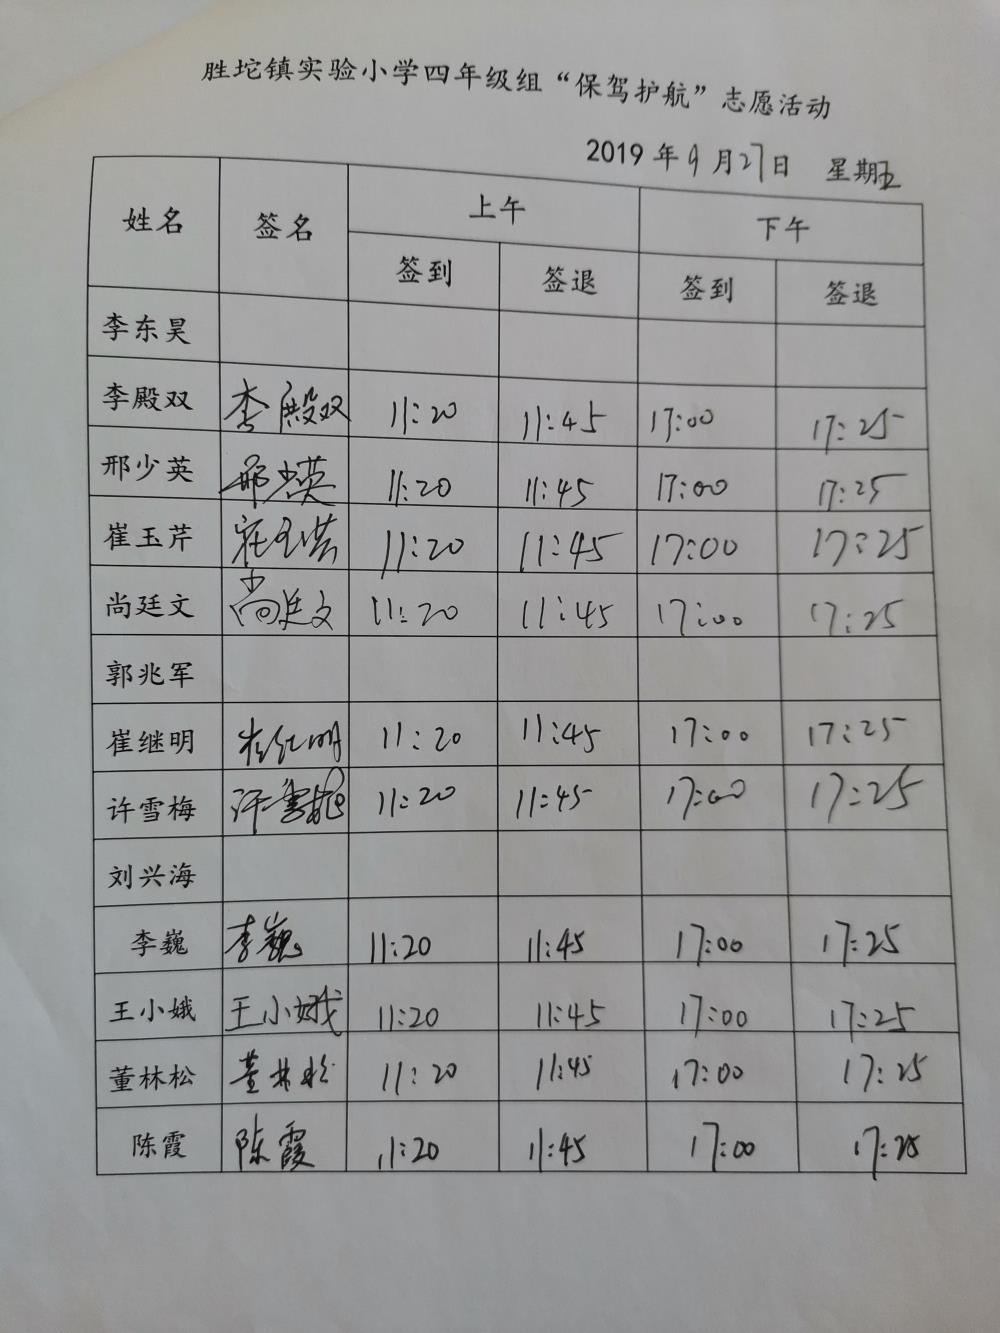 胜坨镇实验小学四年级组“保驾护航”志愿活动
2019年9月27日 星期五
姓名 签名 上午 下午
签到 签退 签到 签退
李东昊
李殿双 李殿双 11:20 11:45 17:00 17:25
邢少英 邢少英 11:20 11:45 17:00 17:25
崔玉芹 崔玉芹 11:20 11:45 17:00 17:25
尚廷文 尚廷文 11:20 11:45 17:00 17:25
郭兆军
崔继明 崔继明 11:20 11:45 17:00 17:25
许雪梅 许雪梅 11:20 11:45 17:00 17:25
刘兴海
李巍 李巍 11:20 11:45 17:00 17:25
王小娥 王小娥 11:20 11:45 17:00 17:25
董林松 董林松 11:20 11:45 17:00 17:25
陈霞 陈霞 11:20 11:45 17:00 17:25